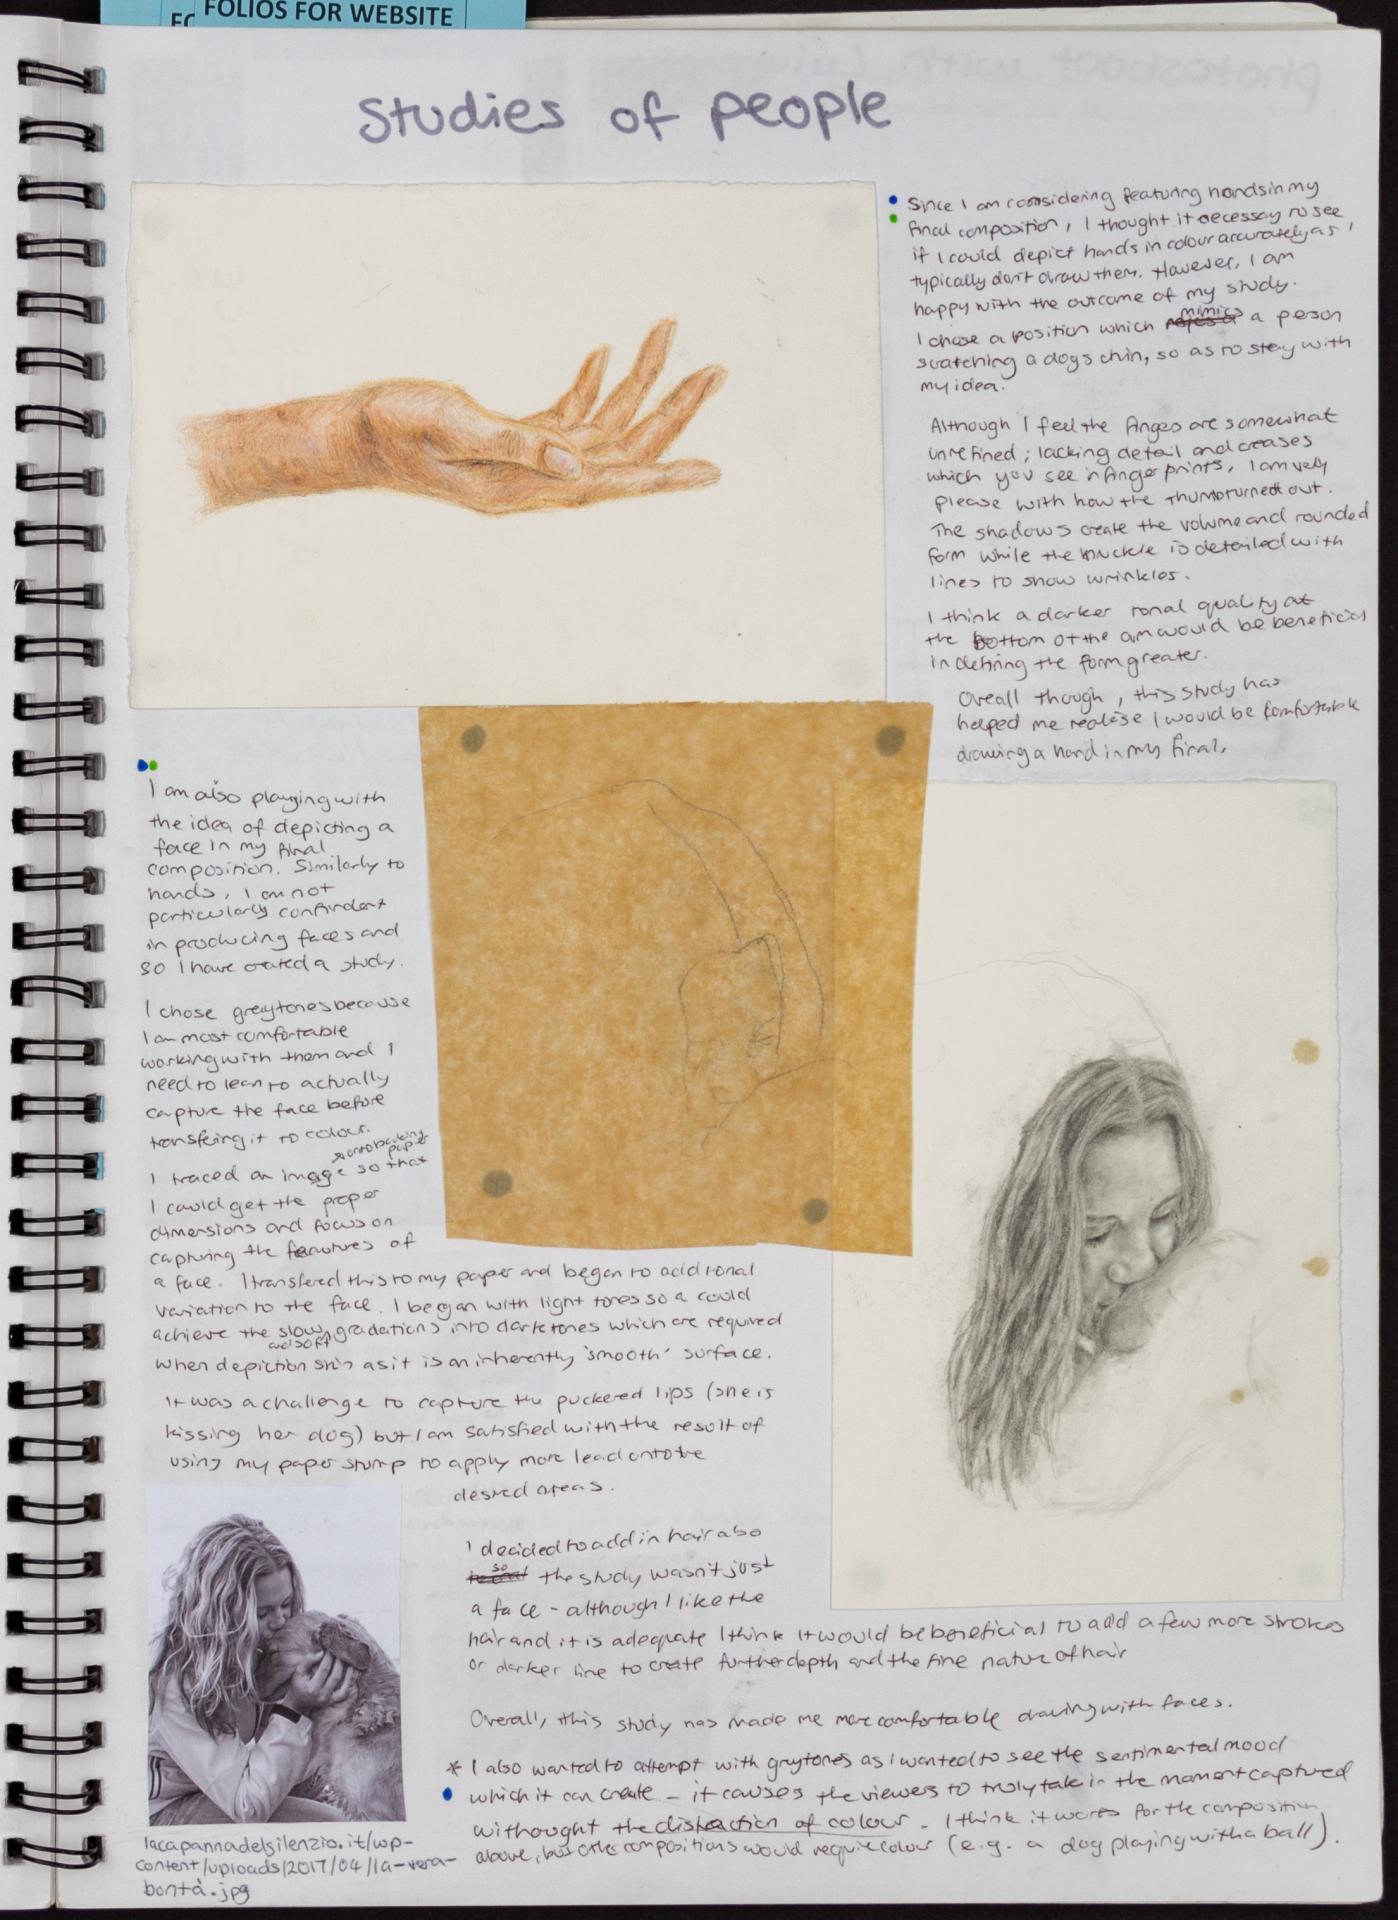 FOLIOS FOR WEBSITE
Studies of people
Since I am considering featuring hands in my
final composition, I thought it necessay to see
if I could depict hands in colour accurately as I
typically don't draw them. However, I am
happy with the outcome of my study.
I chose a position which mimics a person
scratching a dogs chin, so as to stay with
my idea.
Although I feel the finges are somewhat
unrefined; lacking detail and creases
which you see in finger prints, I am vey
please with how the thumb turned out.
The shadows create the volume and rounded
form while the knuckle is detailed with
lines to show wrinkles.
I think a darker tonal quality at
the bottom of the arm would be beneficial
in defining the form greater.
Overall though, this study has
helped me realise I would be comfortable
drawing a hand in my final.
I am also playing with
the idea of depicting a
face in my final
composition. Similarly to
hands, I am not
particularly confindent
in producing faces and
so I have created a study.
I chose greytones because
I am most comfortable
working with them and I
need to lean to actually
capture the face before
transfering it to colour.
onto baking paper
I traced an image so that
I could get the proper
dimensions and focus on
capturing the features of
a face. I transfered this to my paper and began to add tonal
variation to the face. I began with light tones so a could
achieve the slow and soft gradations into dark tones which are required
when depiction skin as it is an inherently 'smooth' surface.
It was a challenge to capture the puckered lips (she is
kissing her dog) but I am satisfied with the result of
using my paper stump to apply more lead onto the
desired areas.
I decided to add in hair also
so the study wasn't just
a face - although I like the
hair and it is adequate I think it would be beneficial to add a few more strokes
or darker line to create further depth and the fine nature of hair
Overall, this study has made me more comfortable drawing with faces.
* I also wanted to attempt with greytones as I wanted to see the sentimental mood
which it can create - it causes the viewers to truly take in the moment captured
withought the distraction of colour. I think it works for the composition
above, but other compositions would require colour (e.g. a dog playing with a ball).
lacapannadelsilenzio.it/wp-
content/uploads/2017/04/la-vera-
bontà.jpg